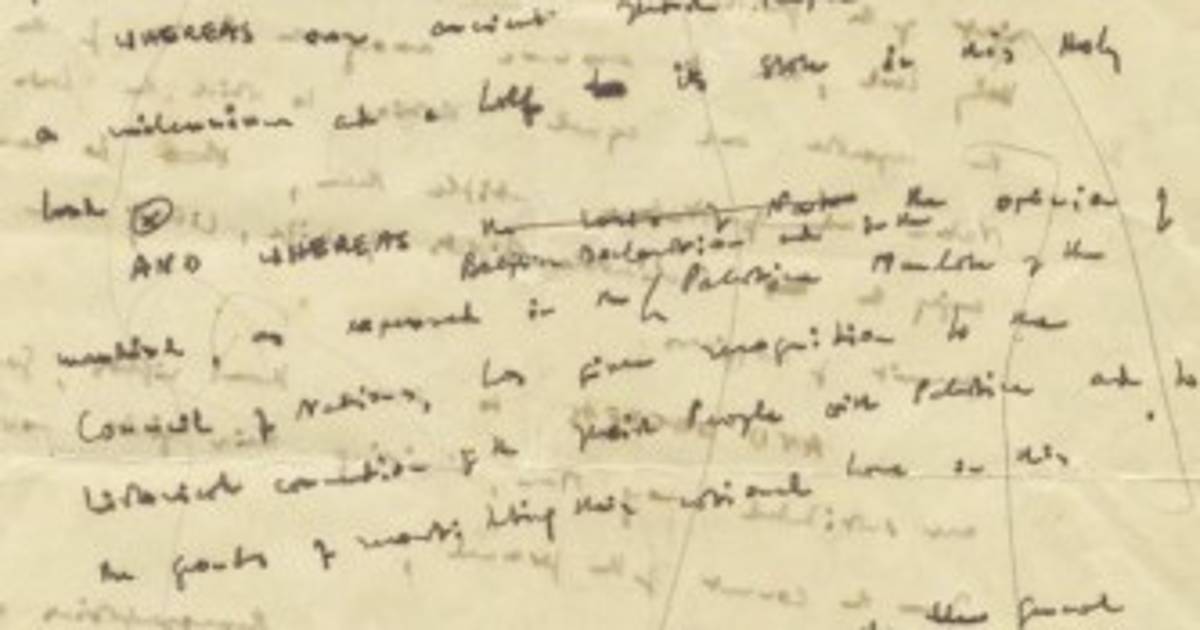 WHEREAS our ancient Jewish People
a millennium and a half its state in this Holy
Land
AND WHEREAS the the opinion of
Balfour Declaration and in the
mankind, as expressed in the Palestine Mandate of the
Council of Nations, has given recognition to the
historical connection of the Jewish People with Palestine and to
the grounds of reconstituting their national home in this
general